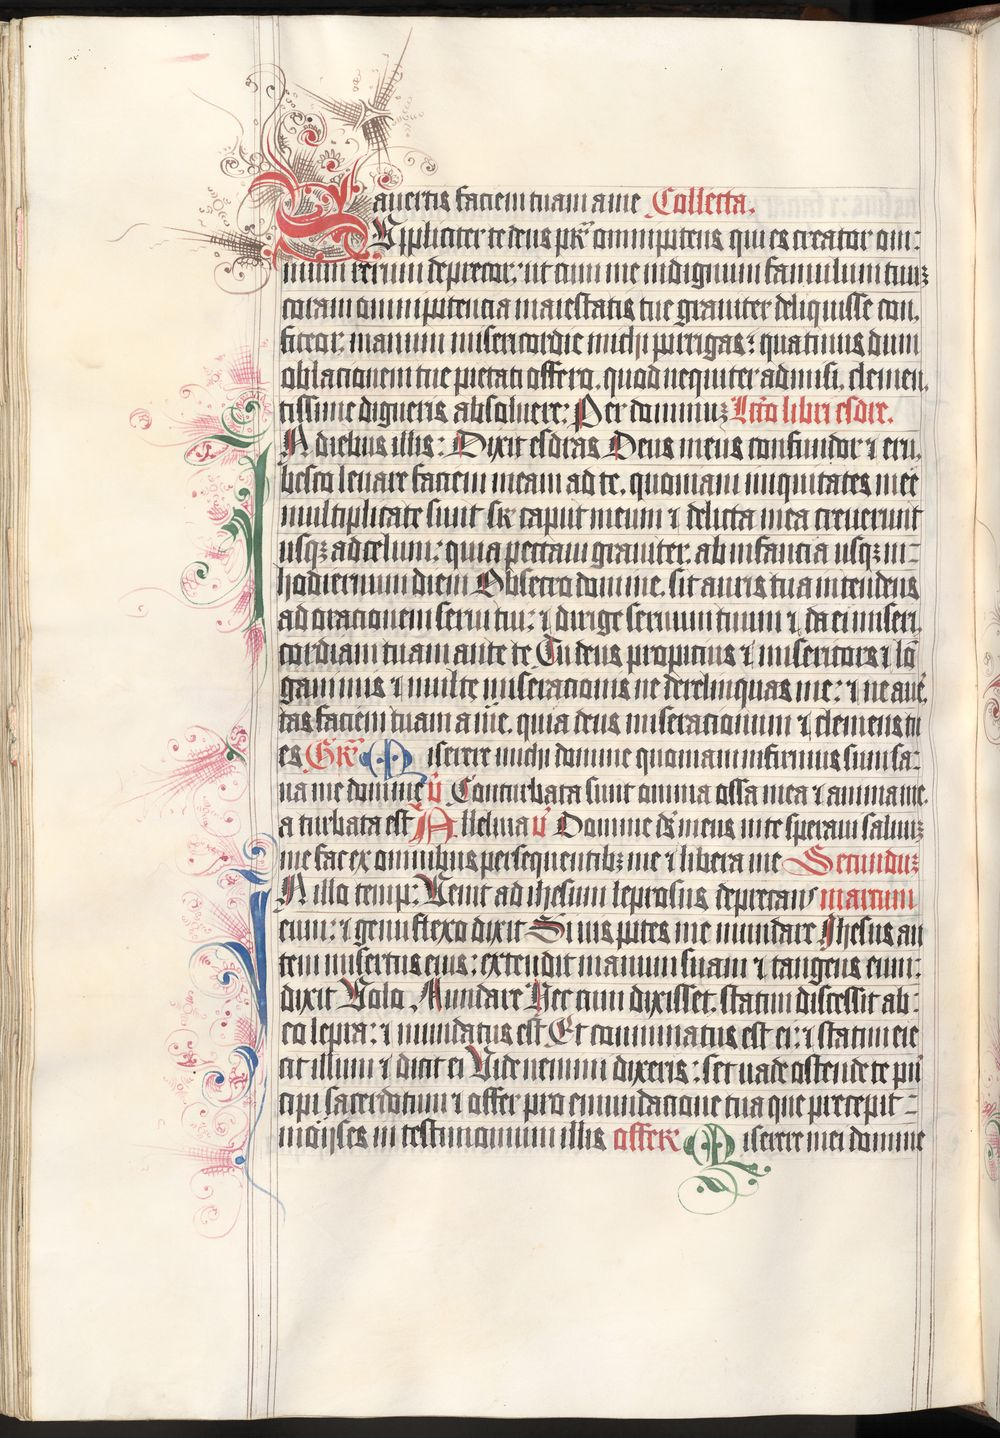 auertis faciem tuam a me Collecta.
Suppliciter te deus pr̄ omnipotens qui es creator om-
nium rerum deprecor: ut cum me indignum famulum tuuꝫ
coram omnipotencia maiestatis tue grauiter deliquisse con-
fiteor. manum misericordie michi porrigas: quatinus dum
oblacionem tue pietati offero. quod nequiter admisi. clemen-
tissime digneris absoluere: Per dominuꝫ Lc̄co libri esdre.
In diebus illis: Dixit esdras Deus meus confundor ⁊ eru-
besco leuare faciem meam ad te. quoniam iniquitates mee
multiplicate sunt sr̄ caput meum ⁊ delicta mea creuerunt
usqꝫ ad celum: quia peccaui grauiter. ab infancia usqꝫ in-
hodiernum diem Obsecro domine. sit auris tua intendens
ad oracionem serui tui: ⁊ dirige seruum tuum ⁊ da ei miseri-
cordiam tuam ante te Tu deus propicius ⁊ misericors ⁊ lō
ganimis ⁊ multe miseracionis ne derelinquas me: ⁊ ne auer̄
tas faciem tuam a me. quia deus miseracionum ⁊ clemens tu
es Gr̄ Miserere michi domine quoniam infirmus sum sa-
na me domine v̄ Conturbata sunt omnia ossa mea ⁊ anima me-
a turbata est Alleluia v̄ Domine ds̄ meus in te speraui saluuꝫ
me fac ex omnibus persequentibꝫ me ⁊ libera me Secunduꝫ
In illo temp: Uenit ad ihesum leprosus deprecans marcum
eum: ⁊ genu flexo dixit Si uis potes me mundare Ihesus au
tem misertus eius: extendit manum suam ⁊ tangens eum:
dixit Uolo Mundare Hec cum dixisset. statim discessit ab-
eo lepra: ⁊ mundatus est Et comminatus est ei: ⁊ statim eie
cit illum ⁊ dicit ei Uide nemini dixeris: set uade ostende te prī
cipi sacerdotum ⁊ offer pro emundacione tua que precepit-
moyses in testimonium illis offer̄ Miserere mei domine